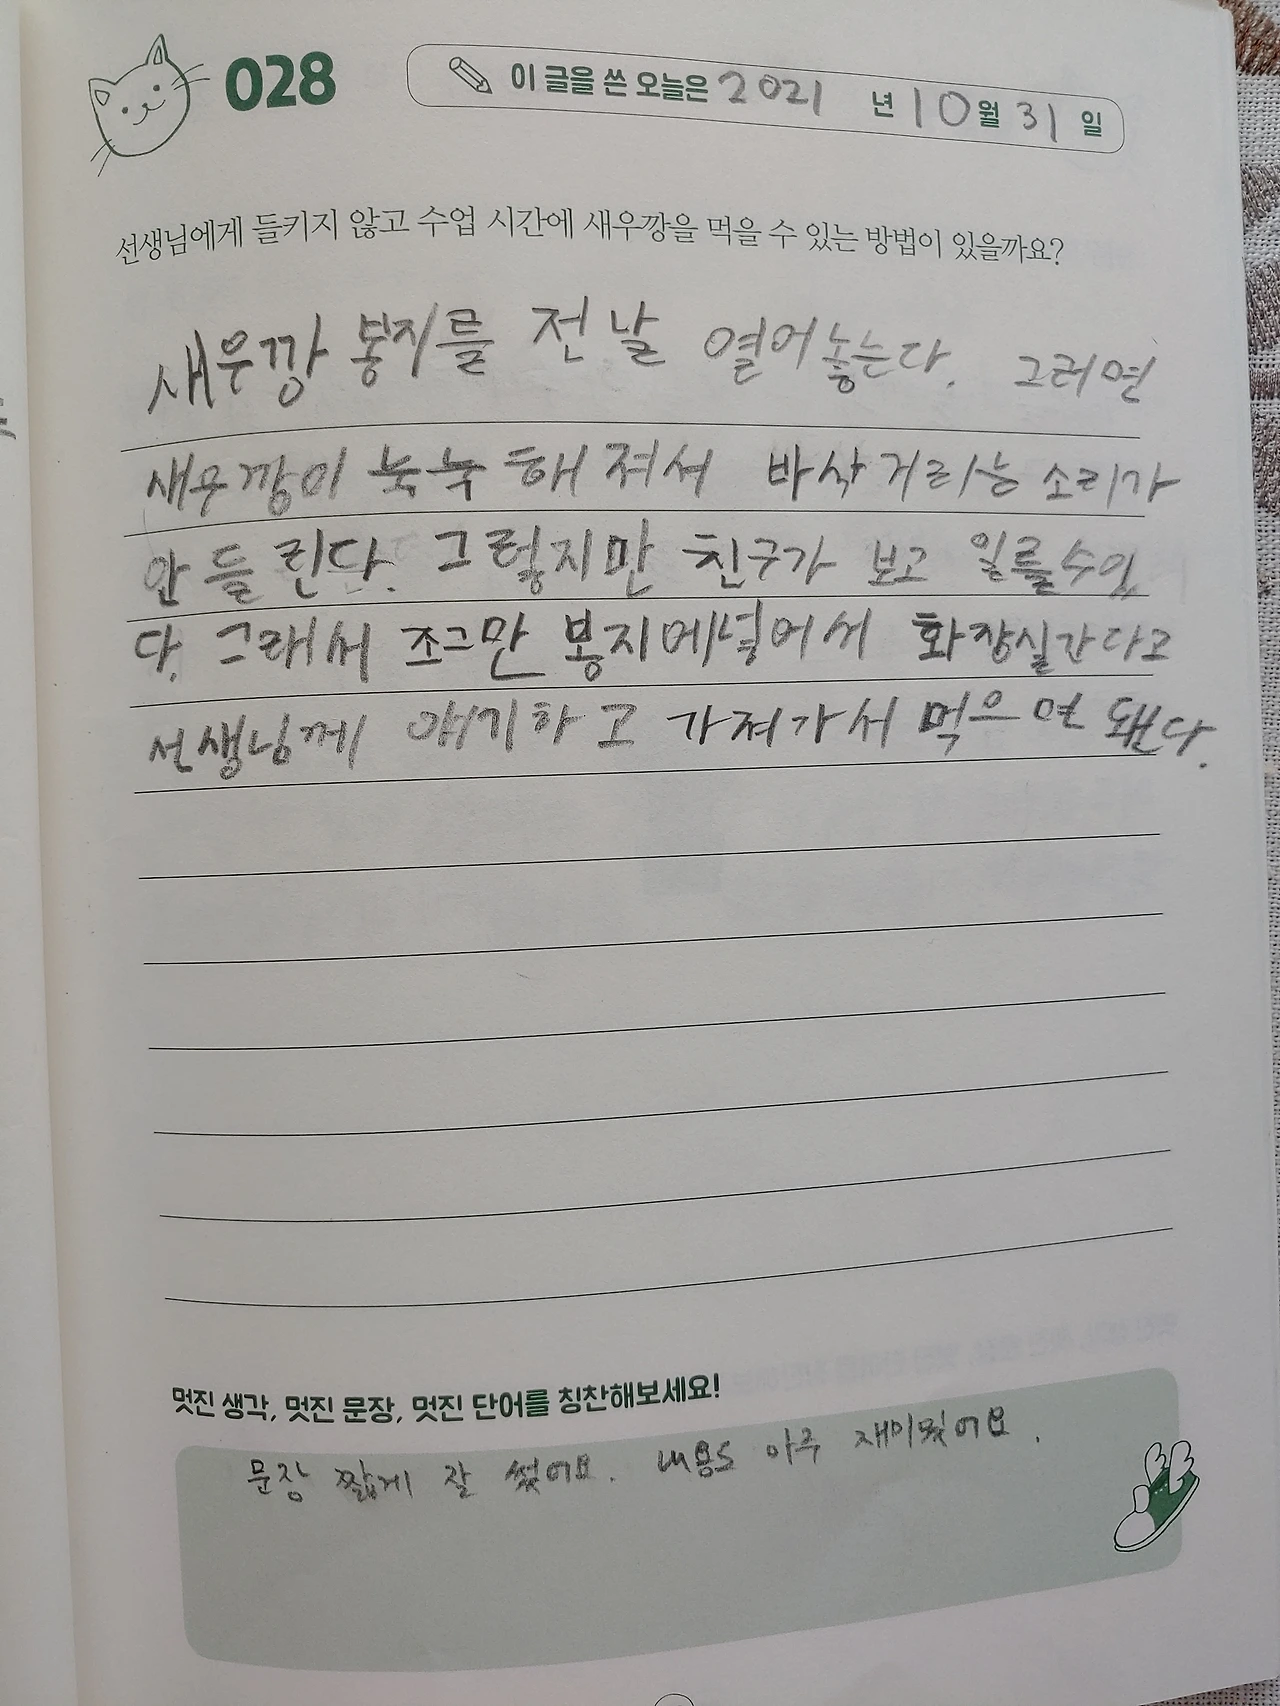 028
이 글을 쓴 오늘은 2021 년 10월 31 일
선생님에게 들키지 않고 수업 시간에 새우깡을 먹을 수 있는 방법이 있을까요?
새우깡 봉지를 전날 열어놓는다. 그러면
새우깡이 눅눅해져서 바삭거리는 소리가
안들린다. 그렇지만 친구가 보고 일를수있
다. 그래써 조그만 봉지에넣어서 화장실간다고
선생님께 얘기하고 가져가서 먹으면 됀다.
멋진 생각, 멋진 문장, 멋진 단어를 칭찬해보세요!
문장 짧게 잘 썼어요. 내용도 아주 재미있어요.